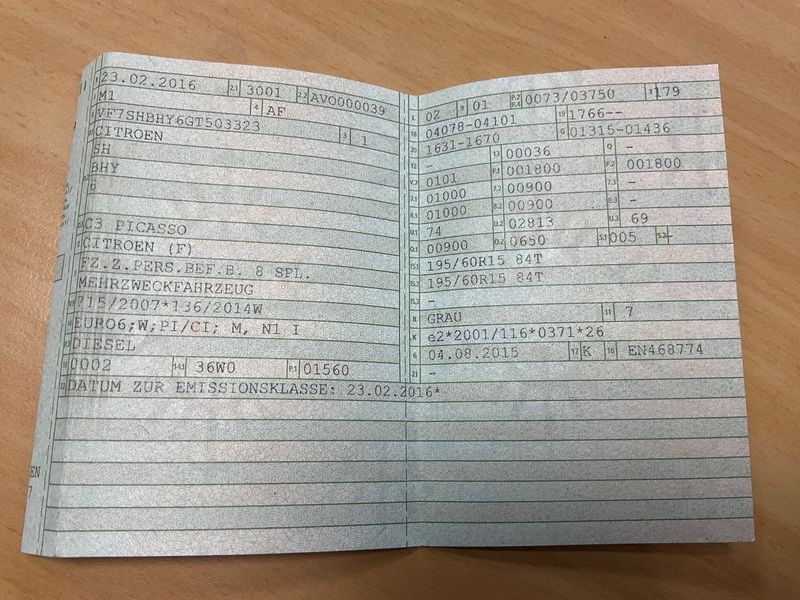 23.02.2016 2.1 3001 2.2 AVO000039
M1 4 AF
VF7SHBHY6GT503323 3 1
CITROEN
SH
BHY
6
C3 PICASSO
CITROEN (F)
FZ.Z.PERS.BEF.B. 8 SPL.
MEHRZWECKFAHRZEUG
715/2007*136/2014W
EURO6;W;PI/CI; M, N1 I
DIESEL
0002 14.1 36W0 P.1 01560
DATUM ZUR EMISSIONSKLASSE: 23.02.2016*
EN
7
L 02 9 01 P.2 P.4 0073/03750 T 179
18 04078-04101 19 1766--
20 1631-1670 G 01315-01436
12 - 13 00036 Q -
V.7 0101 F.1 001800 F.2 001800
7.1 01000 7.2 00900 7.3 -
8.1 01000 8.2 00900 8.3 -
U.1 74 U.2 02813 U.3 69
O.1 00900 O.2 0650 S.1 005 S.2 -
15.1 195/60R15 84T
15.2 195/60R15 84T
15.3 -
R GRAU 11 7
K e2*2001/116*0371*26
6 04.08.2015 17 K 16 EN468774
21 -